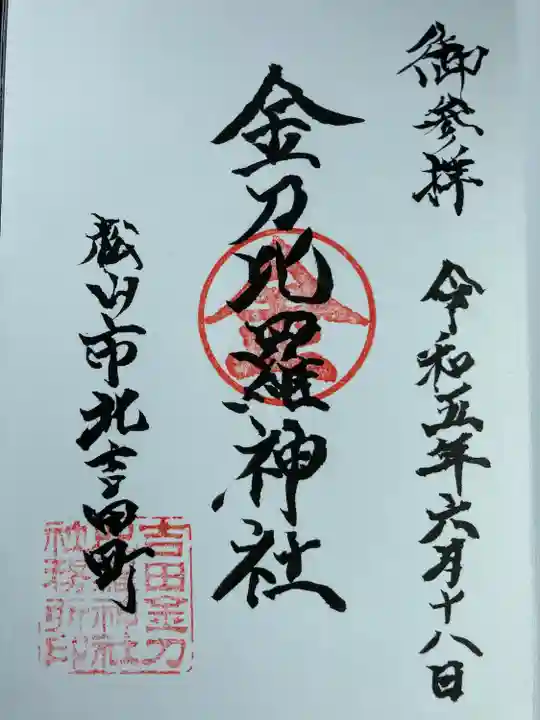 御参拝 令和五年六月十八日
金刀比羅神社
松山市北吉田町
吉田金刀
比羅神社
社務所印